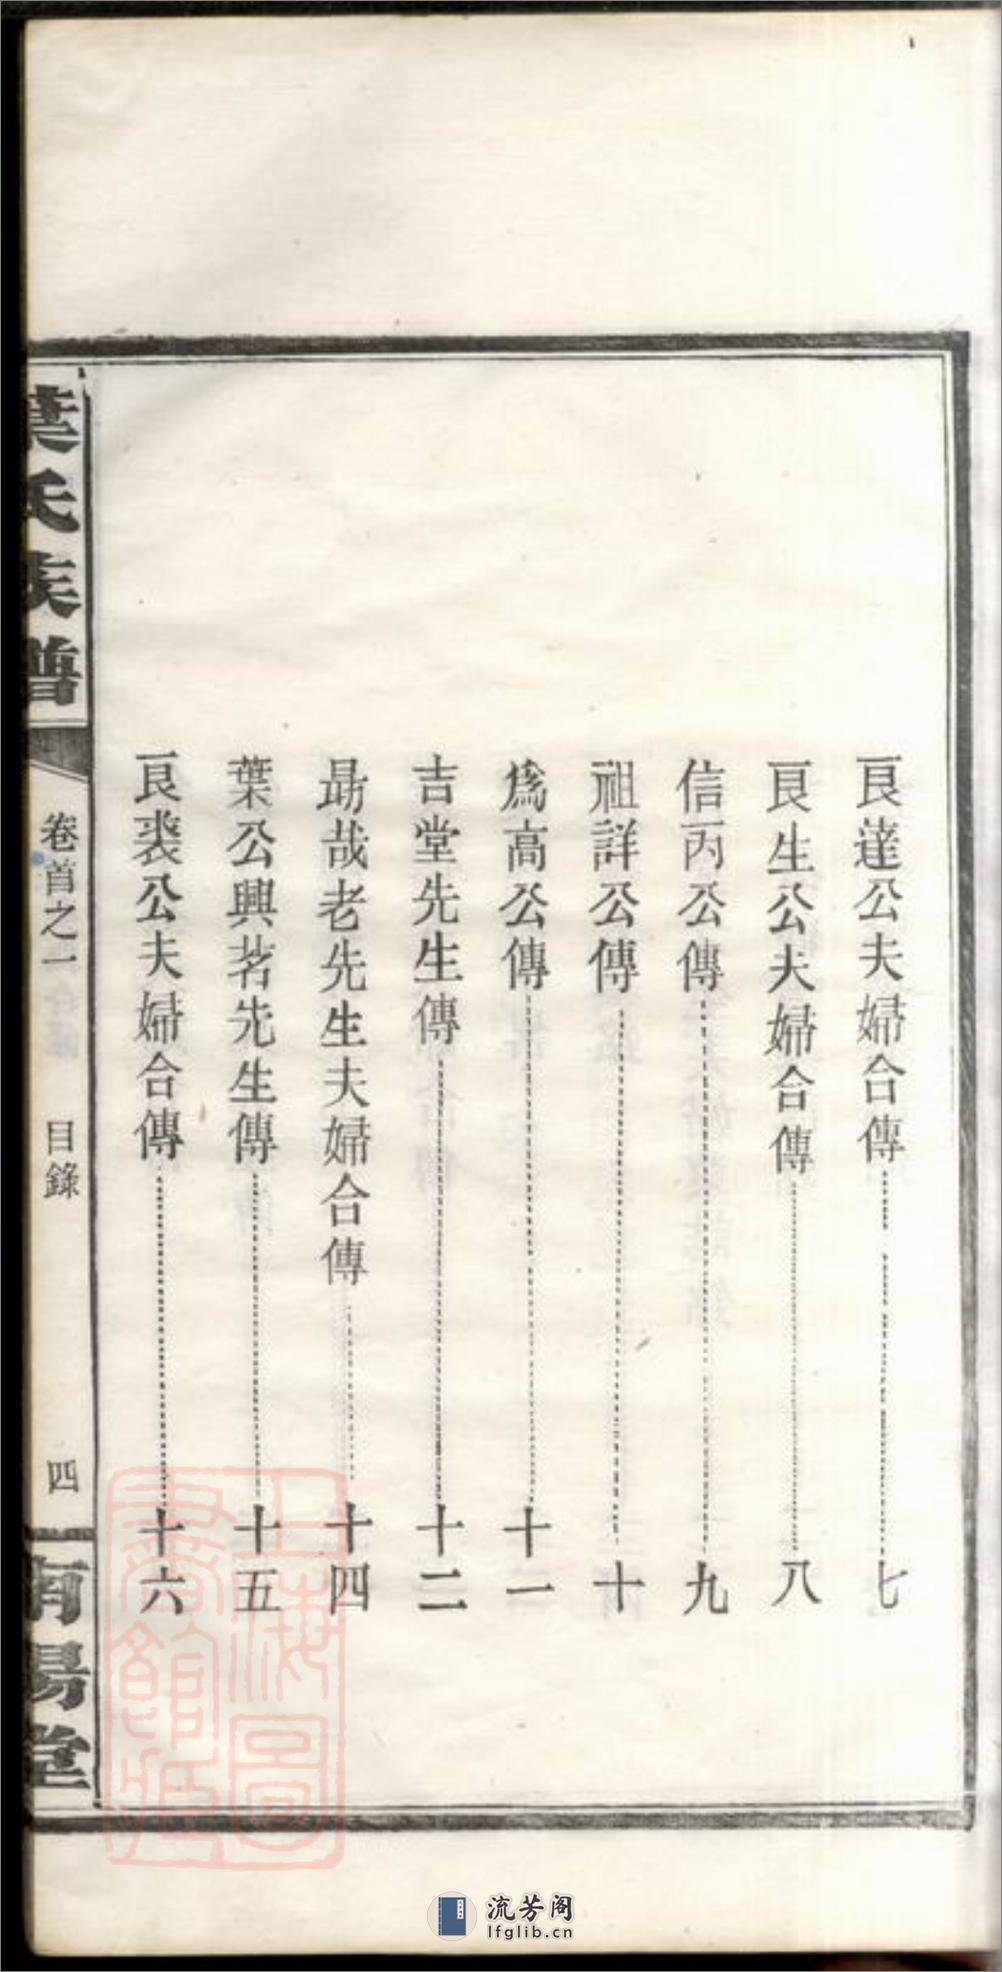 良達公夫婦合傳 七
良生公夫婦合傳 八
信丙公傳 九
祖詳公傳 十
爲高公傳 十一
吉堂先生傳 十二
勗哉老先生夫婦合傳 十四
葉公興茗先生傳 十五
良裘公夫婦合傳 十六
葉氏族譜
卷首之一 目錄 四
南陽堂
上海圖書館藏
流芳阁
lfglib.cn